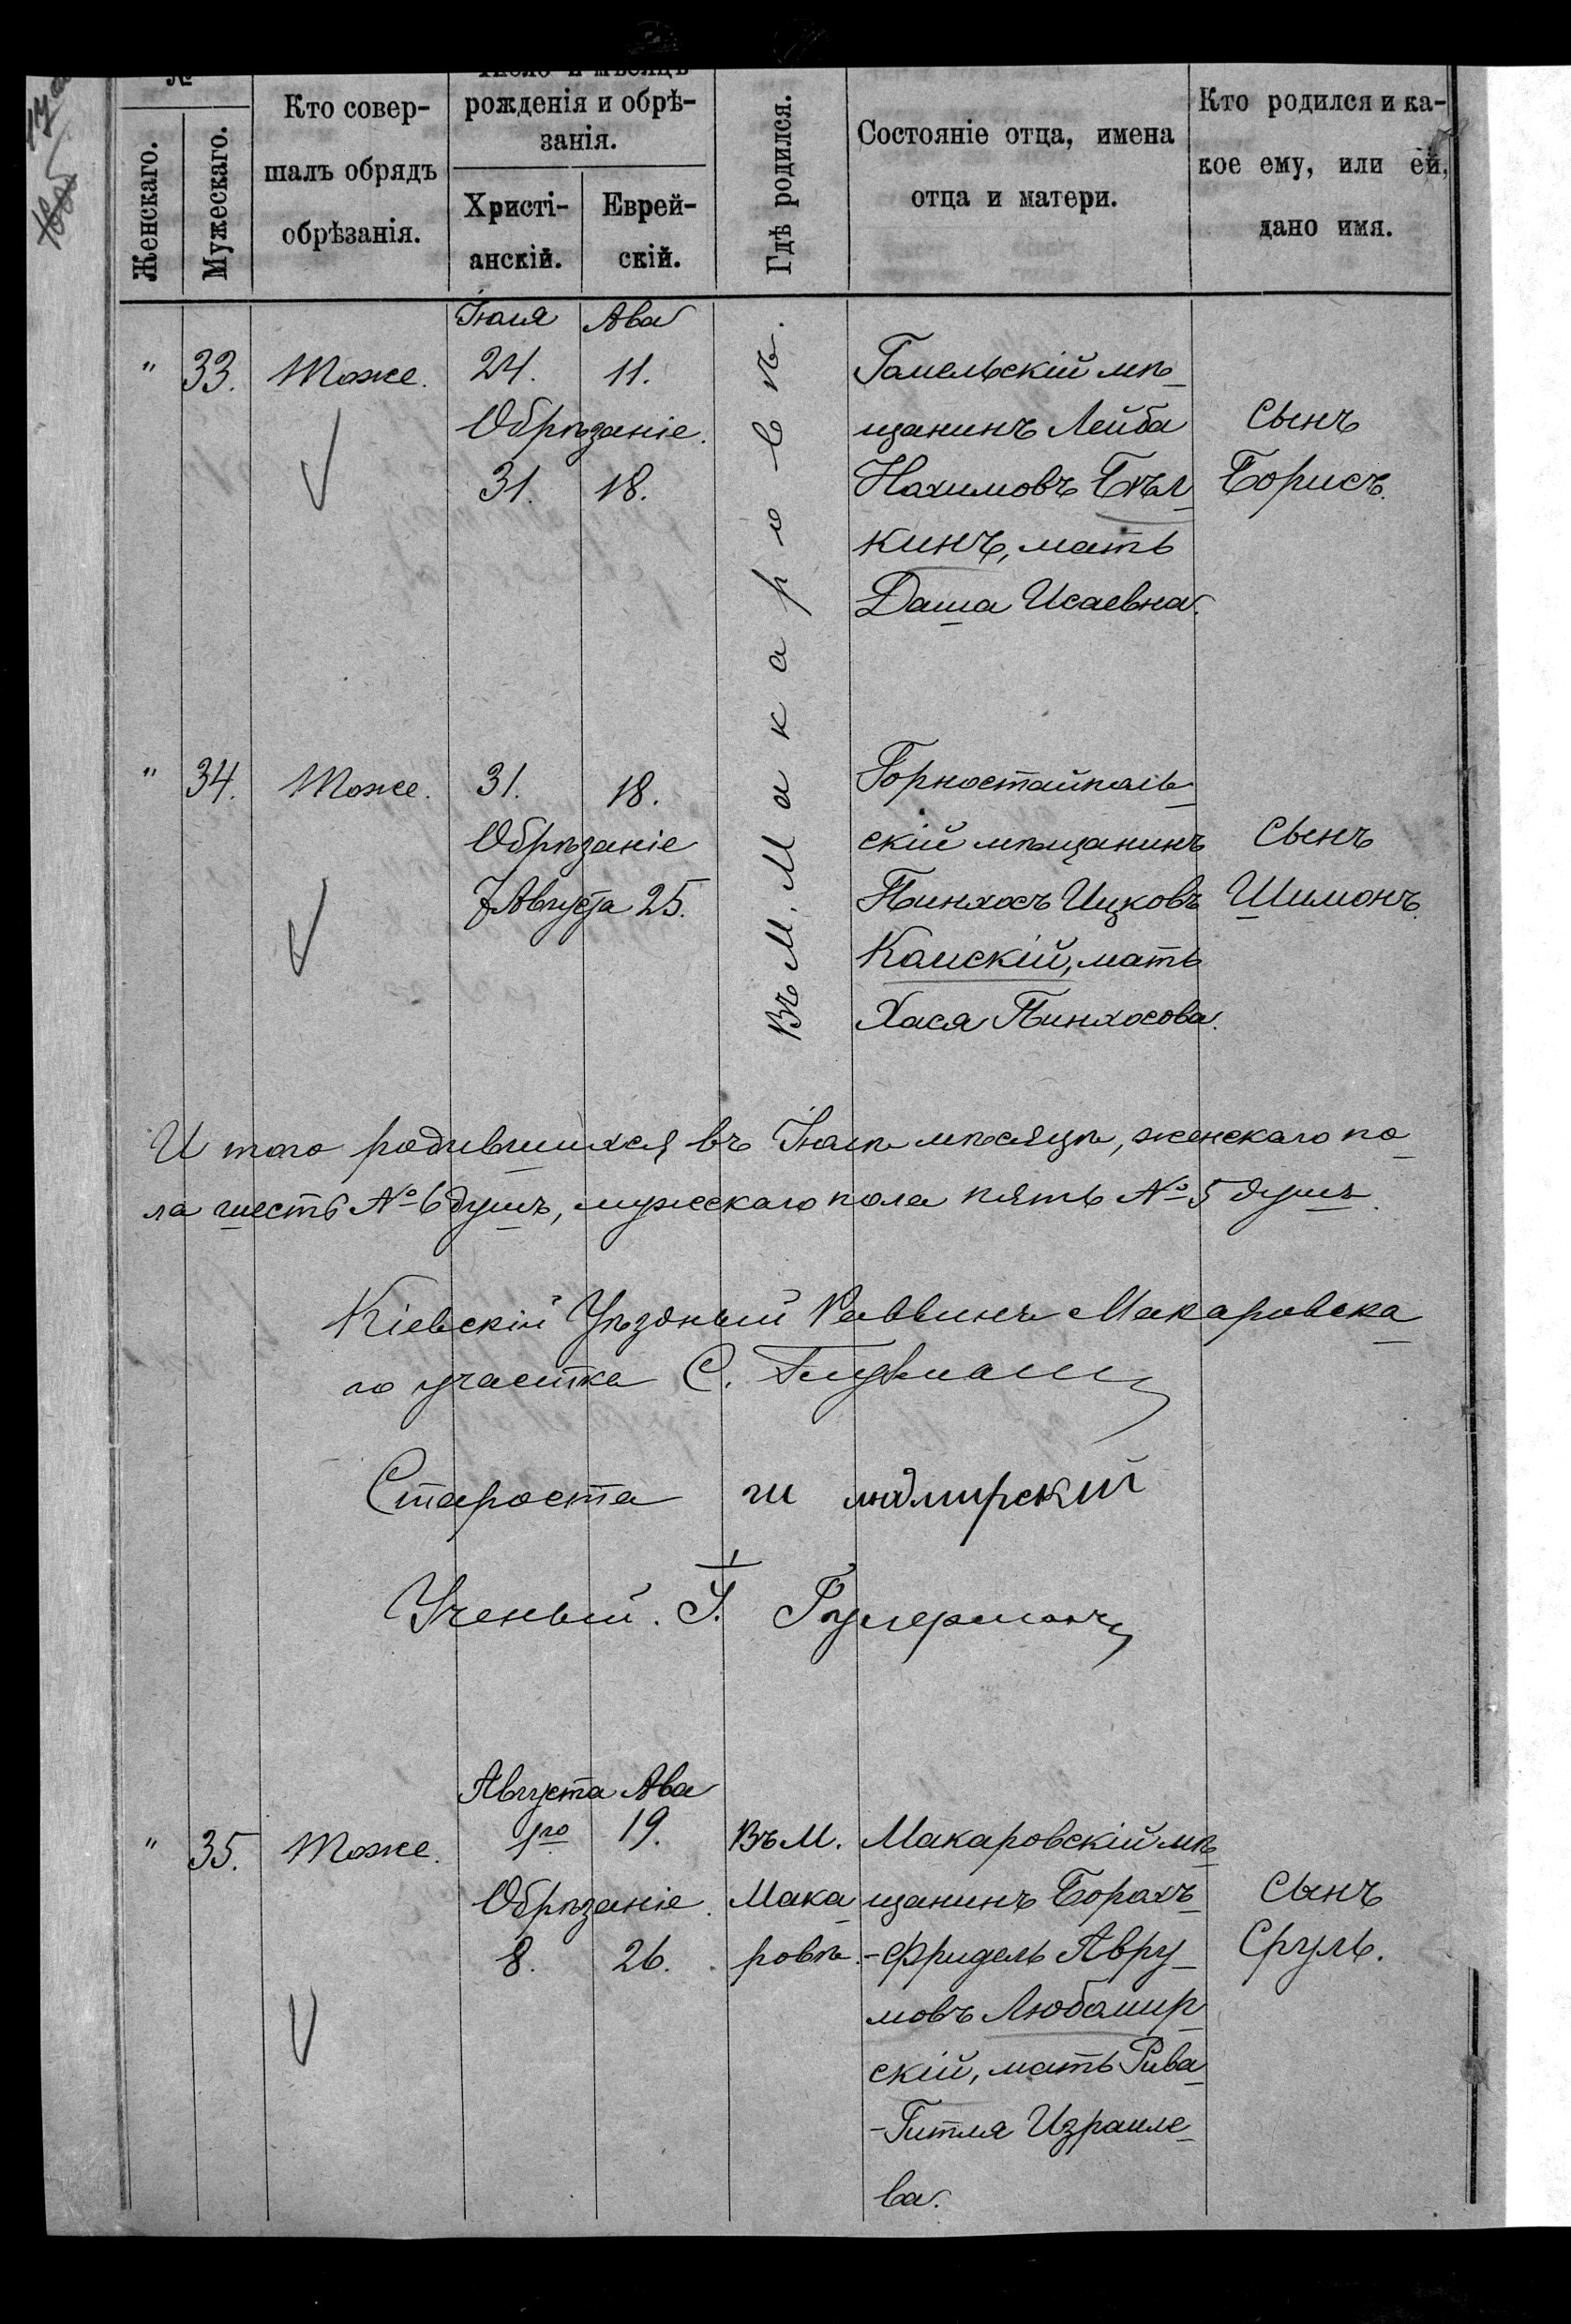 №
Женскаго.
Мужескаго.
Кто совер-
шалъ обрядъ
обрѣзанія.
Число и мѣсяцъ
рожденія и обрѣ-
занія.
Христі-
анскій.
Еврей-
скій.
Гдѣ родился.
Состояніе отца, имена
отца и матери.
Кто родился и ка-
кое ему, или ей,
дано имя.
Іюля Ава
" 33. Тоже. 24. 11.
Обрѣзаніе.
31. 18.
Въ М. Макаровѣ.
Гомельскій мѣ-
щанинъ Лейба
Нахимовъ Бѣл-
кинъ, мать
Даша Исаевна.
Сынъ
Борисъ.
" 34. Тоже. 31. 18.
Обрѣзаніе
7 Августа 25.
Горностайполь-
скій мѣщанинъ
Пинхосъ Ицковъ
Каискій, мать
Хася Пинхосова.
Сынъ
Шимонъ.
И того родившихся въ Іюлѣ мѣсяцѣ, женскаго по-
ла шесть № 6 душъ, мужескаго пола пять № 5 душъ.
Кіевскій Уѣздный Раввинъ Макаровска-
го участка С.
Староста Ш Людмирскій
Ученый.
Августа Ава
" 35. Тоже. 1го 19.
Обрѣзаніе.
8. 26.
Въ М.
Мака-
ровѣ.
Макаровскій мѣ-
щанинъ Борахъ-
-Фридель Авру-
мовъ Любомир-
скій, мать Рива-
-Гитля Израиле-
ва.
Сынъ
Сруль.